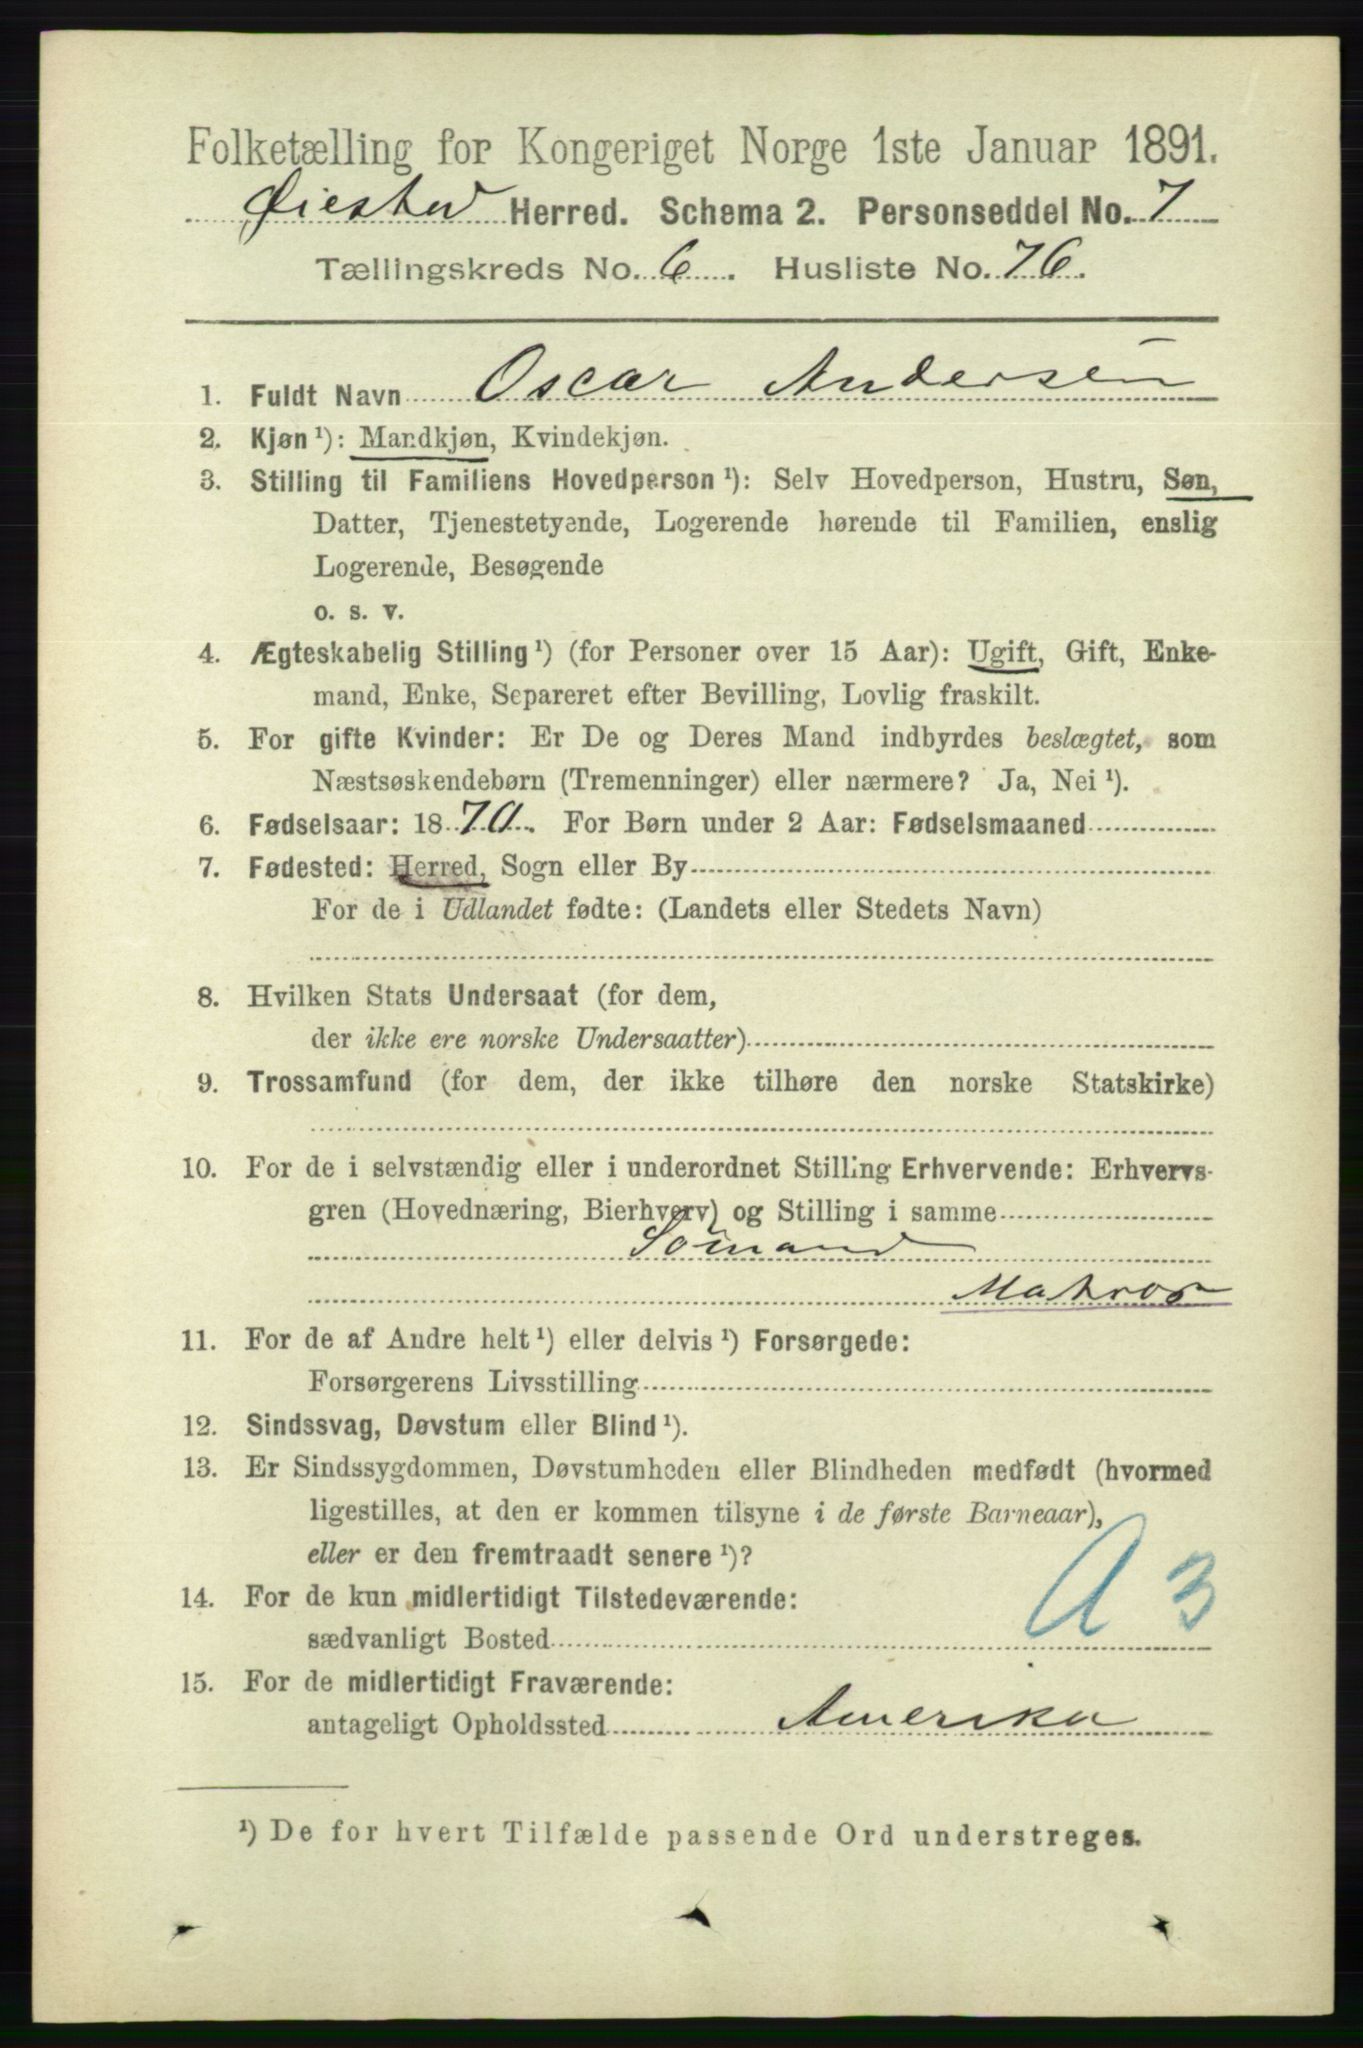 Folketælling for Kongeriget Norge 1ste Januar 1891.
Øiestad Herred. Schema 2. Personseddel No. 7
Tællingskreds No. 6. Husliste No. 76.
1. Fuldt Navn Oscar Andersen
2. Kjøn ¹): Mandkjøn, Kvindekjøn.
3. Stilling til Familiens Hovedperson ¹): Selv Hovedperson, Hustru, Søn,
Datter, Tjenestetyende, Logerende hørende til Familien, enslig
Logerende, Besøgende
o. s. v.
4. Ægteskabelig Stilling ¹) (for Personer over 15 Aar): Ugift, Gift, Enke-
mand, Enke, Separeret efter Bevilling, Lovlig fraskilt.
5. For gifte Kvinder: Er De og Deres Mand indbyrdes beslægtet, som
Næstsøskendebørn (Tremenninger) eller nærmere? Ja, Nei ¹).
6. Fødselsaar: 1870. For Børn under 2 Aar: Fødselsmaaned
7. Fødested: Herred, Sogn eller By
For de i Udlandet fødte: (Landets eller Stedets Navn)
8. Hvilken Stats Undersaat (for dem,
der ikke ere norske Undersaatter)
9. Trossamfund (for dem, der ikke tilhøre den norske Statskirke)
10. For de i selvstændig eller i underordnet Stilling Erhvervende: Erhvervs-
gren (Hovednæring, Bierhverv) og Stilling i samme
Sömand
Matros
11. For de af Andre helt ¹) eller delvis ¹) Forsørgede:
Forsørgerens Livsstilling
12. Sindssvag, Døvstum eller Blind ¹).
13. Er Sindssygdommen, Døvstumheden eller Blindheden medfødt (hvormed
ligestilles, at den er kommen tilsyne i de første Barneaar),
eller er den fremtraadt senere ¹)?
A 3
14. For de kun midlertidigt Tilstedeværende:
sædvanligt Bosted
15. For de midlertidigt Fraværende:
antageligt Opholdssted Amerika
¹) De for hvert Tilfælde passende Ord understreges.